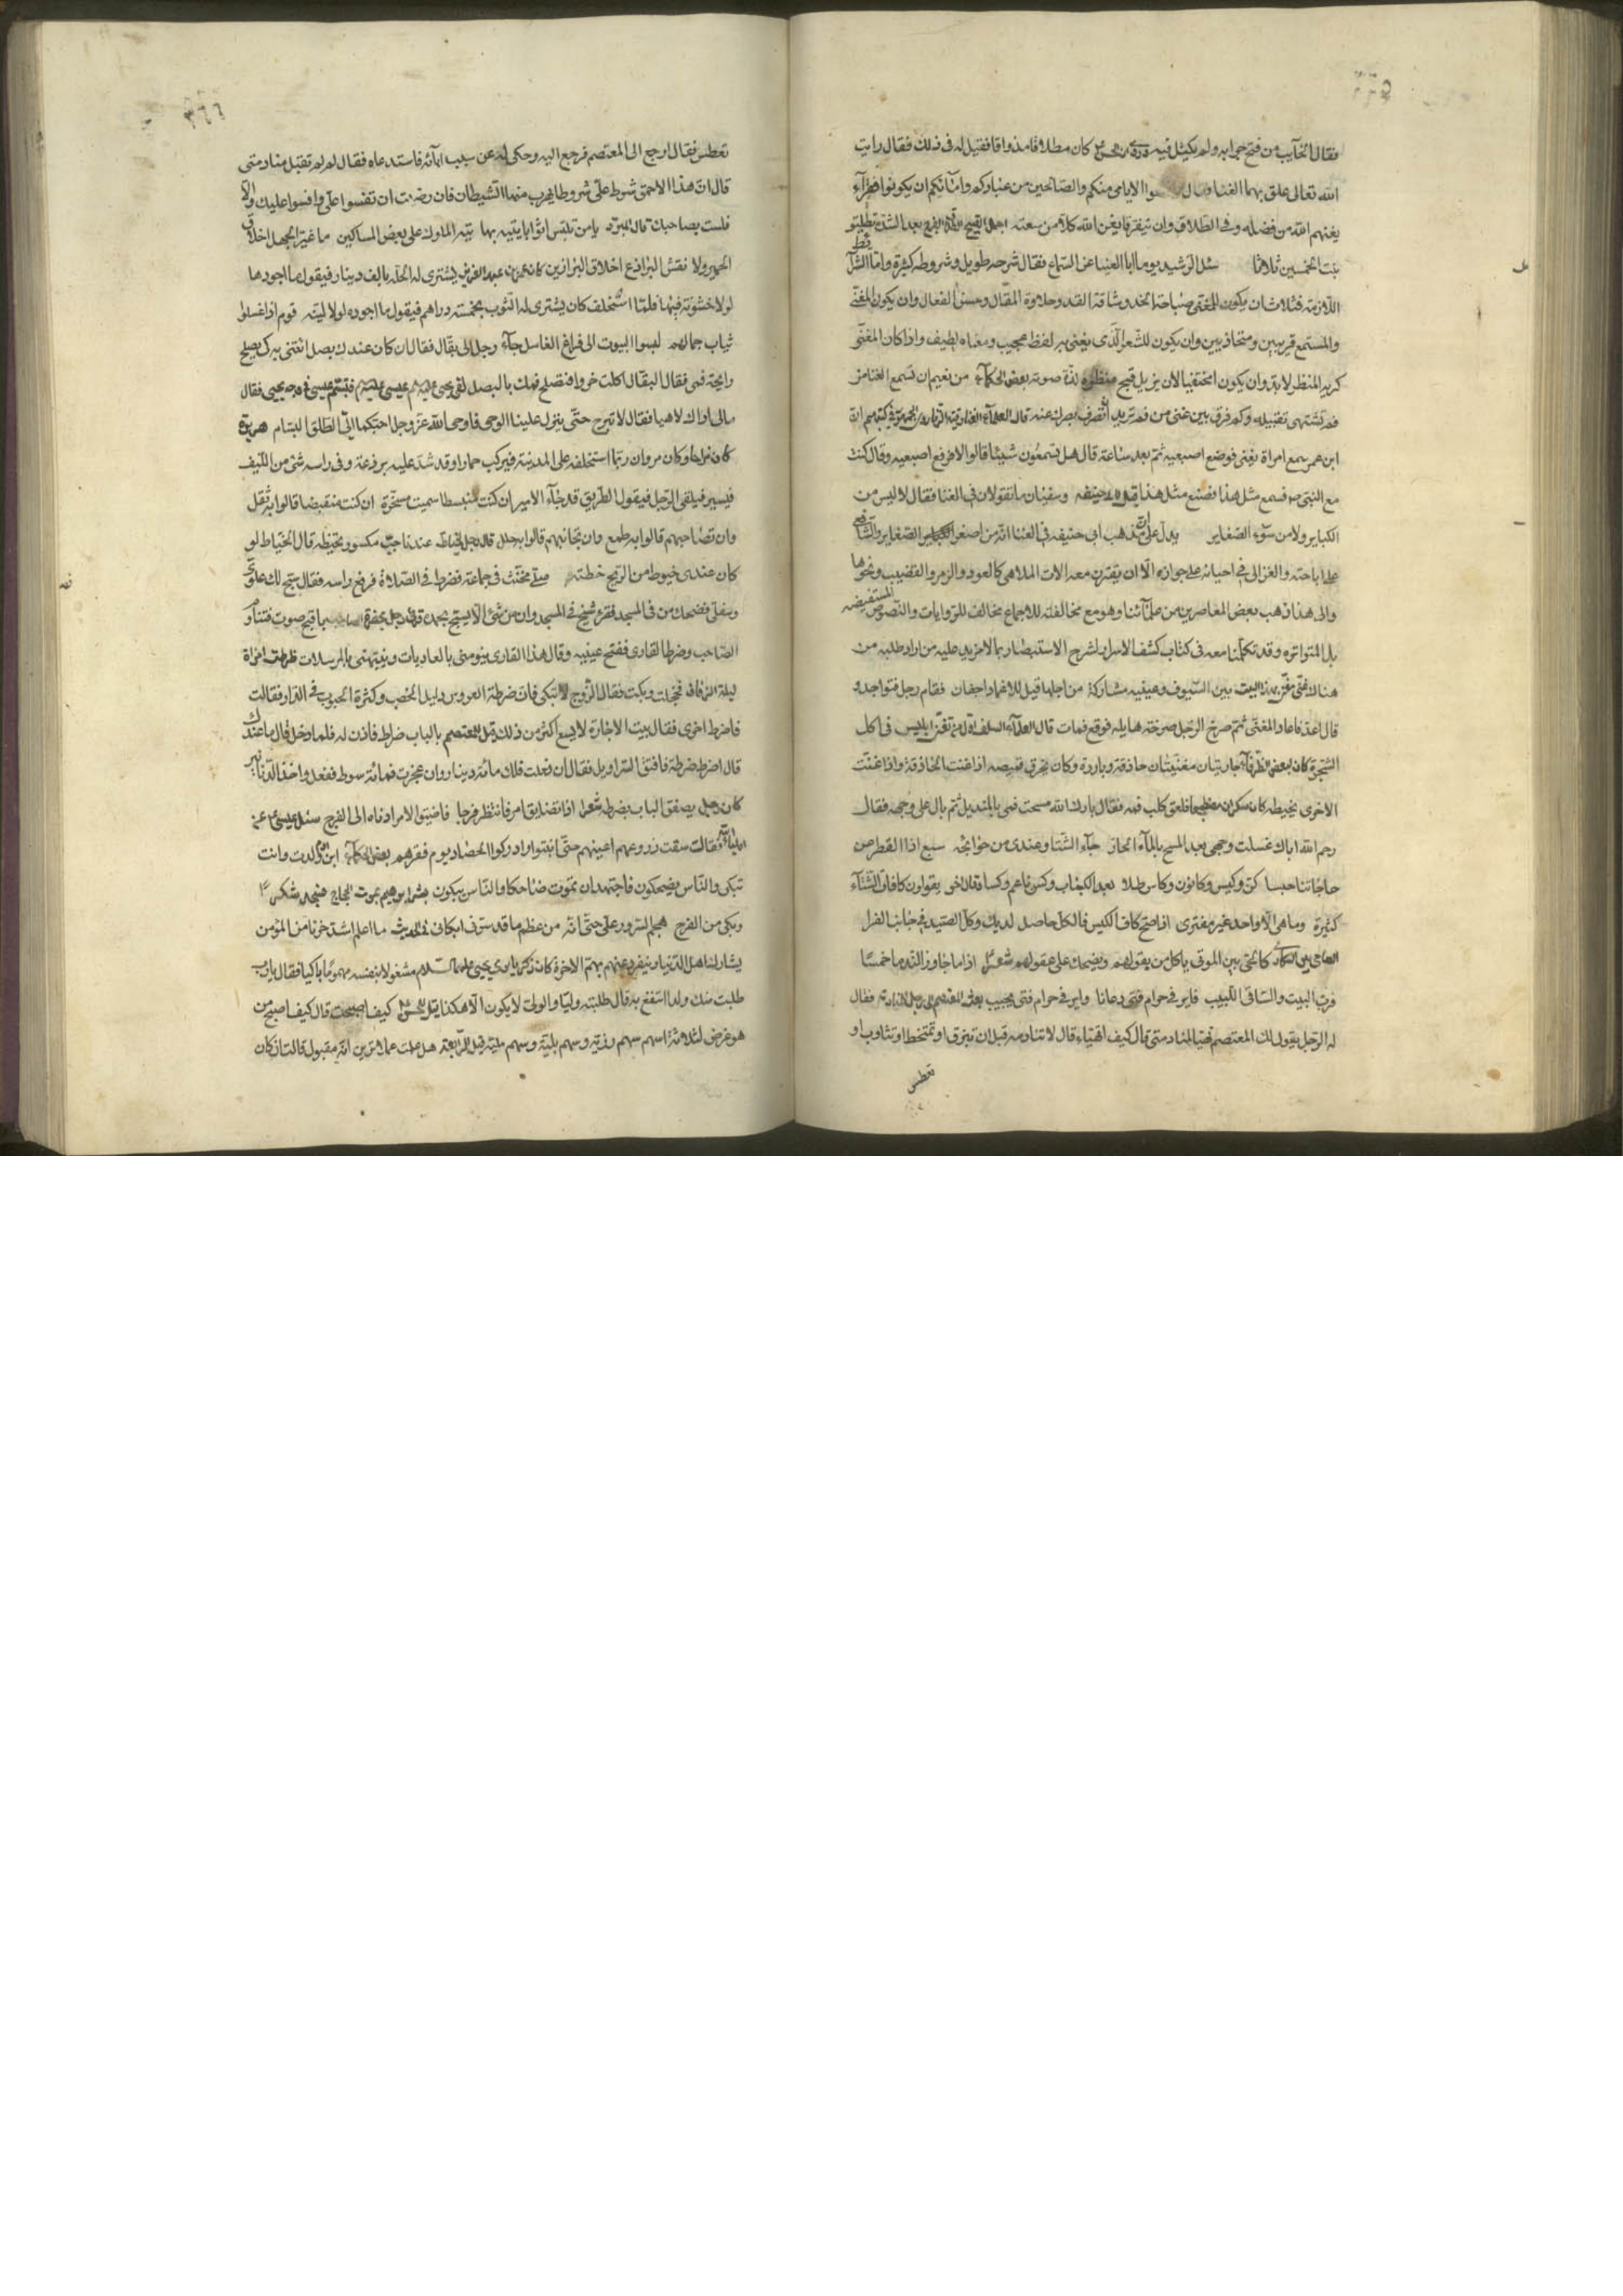 فقال الخائب من فتح جرابه ولم يكتل فيه كان مطلاقا مذواقا فقيل له في ذلك فقال رايت
الله تعالى علق بهما الغنا فقال الايامى منكم والصالحين من عبادكم وامائكم ان يكونوا فقرآء
يغنهم الله من فضله وفي الطلاق وان يتفرقا يغن الله كلا من سعته
بنت الخمسين ثلاثا سئل الرشيد يوما ابا العيناء عن السماع فقال شرحه طويل وشروطه كثيرة واما الشرا
اللازمة فثلاث ان يكون للمغني صباحة الخد ورشاقة القد وحلاوة المقال وحسن الفعال وان يكون المغني
والمستمع قريبين ومتحاذيين وان يكون للشعر الذي يغنى به لفظ عجيب ومعناه لطيف واذا كان المغني
كريه المنظر لا بد وان يكون مختفيا لان يزيل قبح منظره لذة صوته بعض الحكمآء من نعيم ان تسمع الغنا من
فم تشتهى تقبيله وكم فرق بين غنى من فم تريد ان تصرف بصرك عنه قال العلمآء
ابن عمر سمع امراة تغنى فوضع اصبعيه ثم بعد ساعة قال هل تسمعون شيئا قالوا لا فرفع اصبعيه وقال كنت
مع النبي ص فسمع مثل هذا فصنع مثل هذا حنيفه وسفيان ما تقولان في الغنا فقال لا ليس من
الكباير ولا من سوء الصغاير يدل على ان مذهب ابي حنيفه في الغنا انه من اصغر الصغاير والشافعي
على اباحته والغزالى في احيائه على جوازه الا ان يقترن معه الات الملاهى كالعود والزمر والقضيب ونحوها
والى هذا ذهب بعض المعاصرين من علمآئنا وهو مع مخالفته للاجماع مخالف للروايات والنصوص المستفيضه
بل المتواتره وقد تكلمنا معه في كتاب كشف الاسرار لشرح الاستبصار بما لا مزيد عليه من اراد طلبه من
هناك غنى مغن بهذا البيت بين السيوف وعينيه مشاركة من اجلها قيل للاغماد اجفان فقام رجل فتواجد و
قال اعد فاعاد المغنى ثم صرخ الرجل صرخة هايله فوقع فمات قال العلمآء ابليس في اكل
الشجرة كان بعض الظرفآء جاريتان مغنيتان حاذقة وباردة وكان يخرق قميصه اذا غنت الحاذقة واذا غنت
الاخرى يخيطه كان سكران فلعق كلب فمه فقال بارك الله مسحت فمى بالمنديل ثم بال على وجهه فقال
رحم الله اباك غسلت وجهى بعد المسح بالمآء الحار جآء الشتا وعندى من حوائجه سبع اذا القطر عن
حاجاتنا حبسا كن وكيس وكانون وكاس طلا بعد الكباب وكس ناعم وكسا وقال اخر يقولون كافات الشتآء
كثيرة وما هى الا واحد غير مفترى اذا صح كاف الكيس فالكل حاصل لديك وكل الصيد في جانب الفرا
ياكل من بقولهم ويضحك على عقولهم شعر اذا ما جاوز الندما خمسا
فرب البيت والساقى اللبيب فاير في حرام فتى دعانا واير في حرام فتى يجيب بعث المعتصم الى رجل فقال
له الرجل يقول لك المعتصم تهيا لمنادمتى قال كيف اتهياء قال لا تنادمه قبل ان تبزق او تمتخط او تتثاوب او
تعطس
٣٦٦
تعطس فقال ارجع الى المعتصم فرجع اليه وحكى له عن سبب ابائه فاستدعاه فقال لم لم تقبل منادمتى
قال ان هذا الاحمق شرط على شروطا يهرب منها الشيطان فان رضيت ان تفسوا على وافسوا عليك والا
فلست بصاحبك قال المبرد يا من تلبس اثوابا يتيه بها تيه الملوك على بعض المساكين ما غير الجل اخلاق
الحمير ولا نقش البراذع اخلاق البراذين كان عمر بن عبد العزيز يشترى له الحله بالف دينار فيقول ما اجودها
لولا خشونة فيها فلما استخلف كان يشترى له الثوب بخمسة دراهم فيقول ما اجوده لولا لينه قوم اذا غسلوا
ثياب جمالهم لبسوا البيوت الى فراغ الغاسل جآء رجل الى بقال فقال ان كان عندك بصل ائتنى به كى يصلح
رايحة فمى فقال البقال اكلت خرا وافتصلح فمك بالبصل لقى يحيى عيسى فتبسم عيسى في وجه يحيى فقال
مالى اراك لاهيا فقال لا تبرح حتى ينزل علينا الوحى فاوحى الله عز وجل احبكما الى الطلق البسام
كان مزاحا وكان مروان ربما استخلفه على المدينة فيركب حمارا وقد شد عليه برذعة وفي راسه شئ من الليف
فيسير فيلقى الرجل فيقول الطريق قد جآء الامير ان كنت منبسطا سميت مسخرة ان كنت منقبضا قالوا به ثقل
وان تصاحبهم قالوا به طمع وان تجانبهم قالوا به ملل قال رجل لخياط عندنا حب مكسور تخيطه قال الخياط لو
كان عندى خيوط من الريح خطته صلى مخنث في جماعة فضرط في الصلاة فرفع راسه فقال سبح لك علوى
وسفلى فضحك من في المسجد فقرء شيخ في المسجد وان من شئ الا يسبح بحمده قرء رجل بحضرة الصاحب باقبح صوت فتناوم
الصاحب وضرط القارى ففتح عينيه وقال هذا القارى ينومنى بالعاديات وينبهنى بالمرسلات ضرطت امراة
ليلة الزفاف فخجلت وبكت فقال الزوج لا تبكى فان ضرطة العروس دليل الخصب وكثرة الحبوب في الدار فقالت
فاضرط اخرى فقال بيت الاجارة لا يسع اكثر من ذلك قيل للمعتصم بالباب ضراط فاذن له فلما دخل قال ما عندك
قال اضرط ضرطة فافتق السراويل فقال ان فعلت فلك مائة دينار وان عجزت فمائة سوط ففعل واخذ الدنانير
كان رجل يصفق الباب بضرطه شعر اذا تضايق امر فانتظر فرجا فاضيق الامر ادناه الى الفرج سئل عيسى ع عن
البلياء فقالت سقت زروعهم اعينهم حتى انبتوا وادركوا الحصاد يوم فقرهم بعض الحكمآء ابن ولدت وانت
تبكى والناس يضحكون فاجتهد ان تموت ضاحكا والناس يبكون بشر ابراهيم بموت الحجاج فسجد شكرا
وبكى من الفرح هجم السرور على حتى انه من عظم ما قد سرنى ابكانى في الحديث ما اعلم اشد حزنا من المؤمن
يشارك اهل الدنيا وينفرد عنهم بهم الاخرة كان زكريا يرى يحيى عليهما السلام مشغولا بنفسه مهموما باكيا فقال يارب
طلبت منك ولدا انتفع به قال طلبته وليا والولى لا يكون الا هكذا قيل كيف اصبحت قال كيف اصبح من
هو غرض لثلاثة اسهم سهم رزية وسهم بلية وسهم منية قيل لرابعة هل عملت عملا ترين انه مقبول قالت ان كان